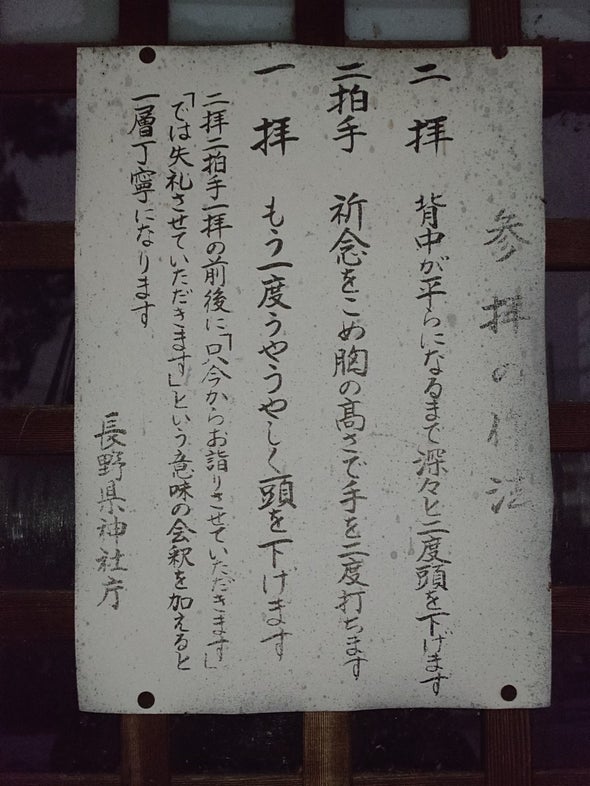 参拝の作法
二拝 背中が平らになるまで深々と二度頭を下げます
二拍手 祈念をこめ胸の高さで手を二度打ちます
一拝 もう一度うやうやしく頭を下げます
二拝二拍手一拝の前後に「只今からお詣りさせていただきます」
「では失礼させていただきます」という意味の会釈を加えると
一層丁寧になります
長野県神社庁